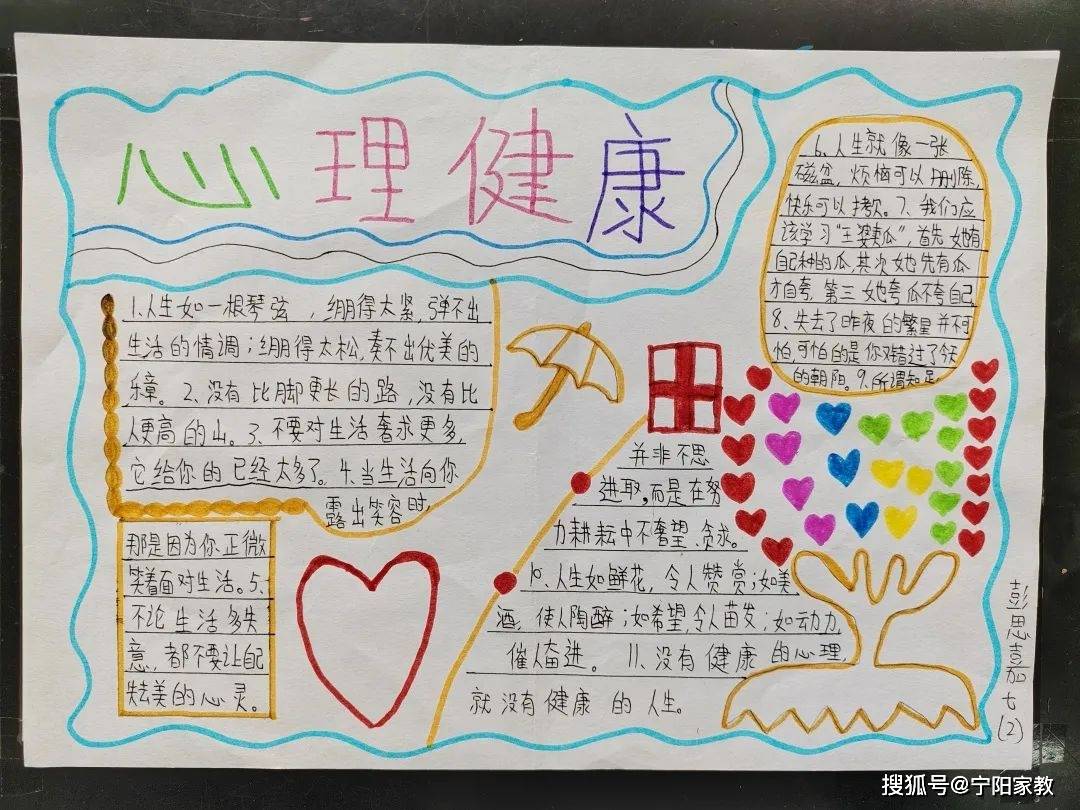 心理健康
1、人生如一根琴弦，绷得太紧，弹不出
生活的情调；绷得太松，奏不出优美的
乐章。2、没有比脚更长的路，没有比
人更高的山。3、不要对生活奢求更多，
它给你的已经太多了。4、当生活向你
露出笑容时，
那是因为你正微
笑着面对生活。5、
不论生活多失
意，都不要让自己
失去美的心灵。
6、人生就像一张
磁盆，烦恼可以删除，
快乐可以拷欠。7、我们应
该学习“王婆卖瓜”，首先她有
自己种的瓜，其次她先有瓜
才自夸，第三她夸瓜不夸自己
8、失去了昨夜的繁星并不可
怕，可怕的是你错过了今天
的朝阳。9、所谓知足
并非不思
进取，而是在努
力耕耘中不奢望、贪求。
10、人生如鲜花，令人赞赏；如美
酒，使人陶醉；如希望，令人苗发；如动力，
催人奋进。11、没有健康的心理，
就没有健康的人生。
彭思嘉七(2)
搜狐号@宁阳家教